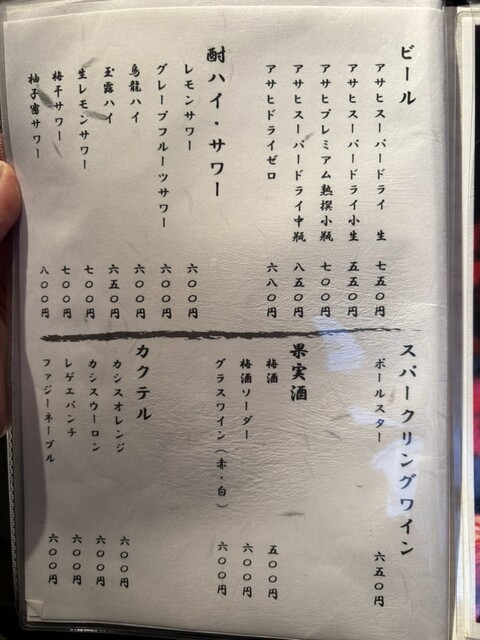 ビール
アサヒスーパードライ 生 七五〇円
アサヒスーパードライ小生 五五〇円
アサヒプレミアム熟撰小瓶 七〇〇円
アサヒスーパードライ中瓶 八五〇円
アサヒドライゼロ 六八〇円
酎ハイ・サワー
レモンサワー 六〇〇円
グレープフルーツサワー 六〇〇円
烏龍ハイ 六〇〇円
玉露ハイ 六五〇円
生レモンサワー 七〇〇円
梅干サワー 七〇〇円
柚子蜜サワー 八〇〇円
スパークリングワイン
ポールスター 六五〇円
果実酒
梅酒 五〇〇円
梅酒ソーダー 六〇〇円
グラスワイン（赤・白） 六〇〇円
カクテル
カシスオレンジ 六〇〇円
カシスウーロン 六〇〇円
レゲエパンチ 六〇〇円
ファジーネーブル 六〇〇円